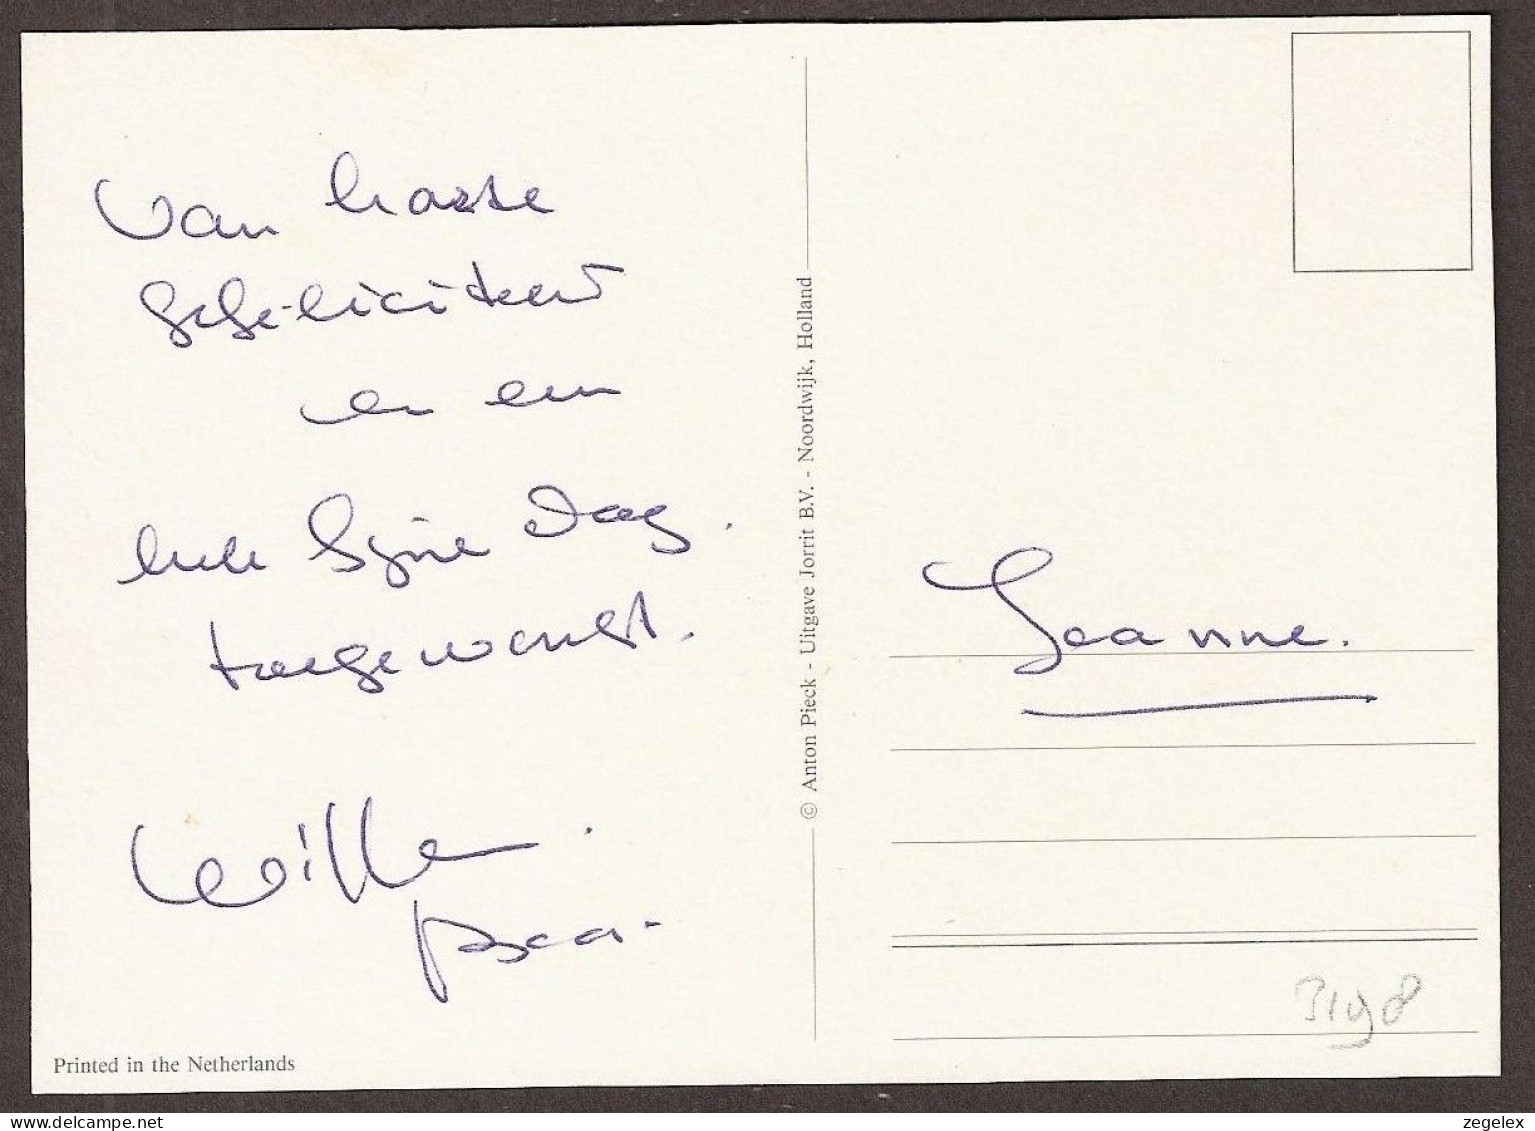 van harte
gefeliciteerd
en een
hele fijne dag.
toegewenst.
Willem
Jeanne.
© Anton Pieck - Uitgave Jorrit B.V. - Noordwijk, Holland
3198
Printed in the Netherlands
www.delcampe.net
zegelex